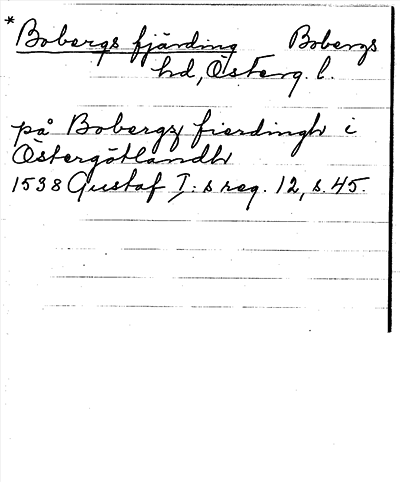 * Bobergs fjärding Bobergs
hd, Österg. l.
på Bobergz fierdingh i
Östergötlandh
1538 Gustaf I:s reg. 12, s. 45.